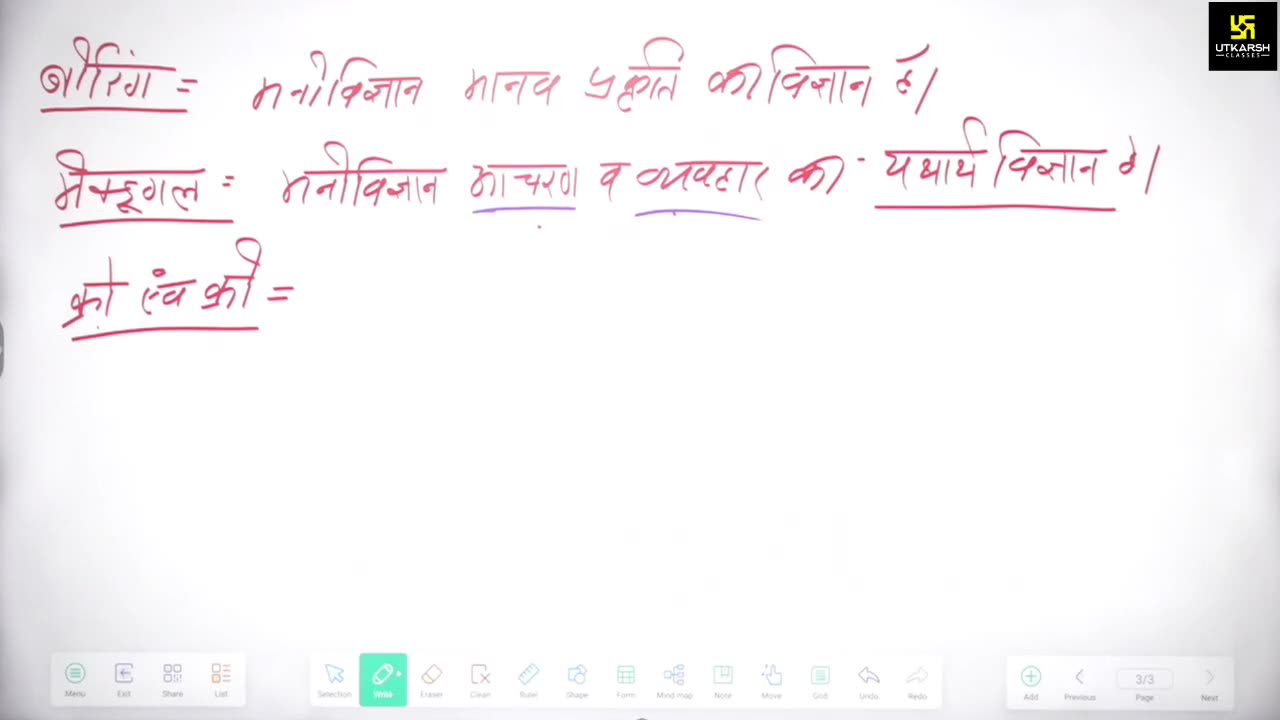 बोरिंग = मनोविज्ञान मानव प्रकृति का विज्ञान है।
मैक्डूगल = मनोविज्ञान आचरण व व्यवहार का यथार्थ विज्ञान है।
क्रो एंव क्रो =
UTKARSH
CLASSES
Menu Exit Share List Selection Write Eraser Clean Ruler Shape Form Mind map Note Move Grid Undo Redo Add Previous 3/3 Page Next